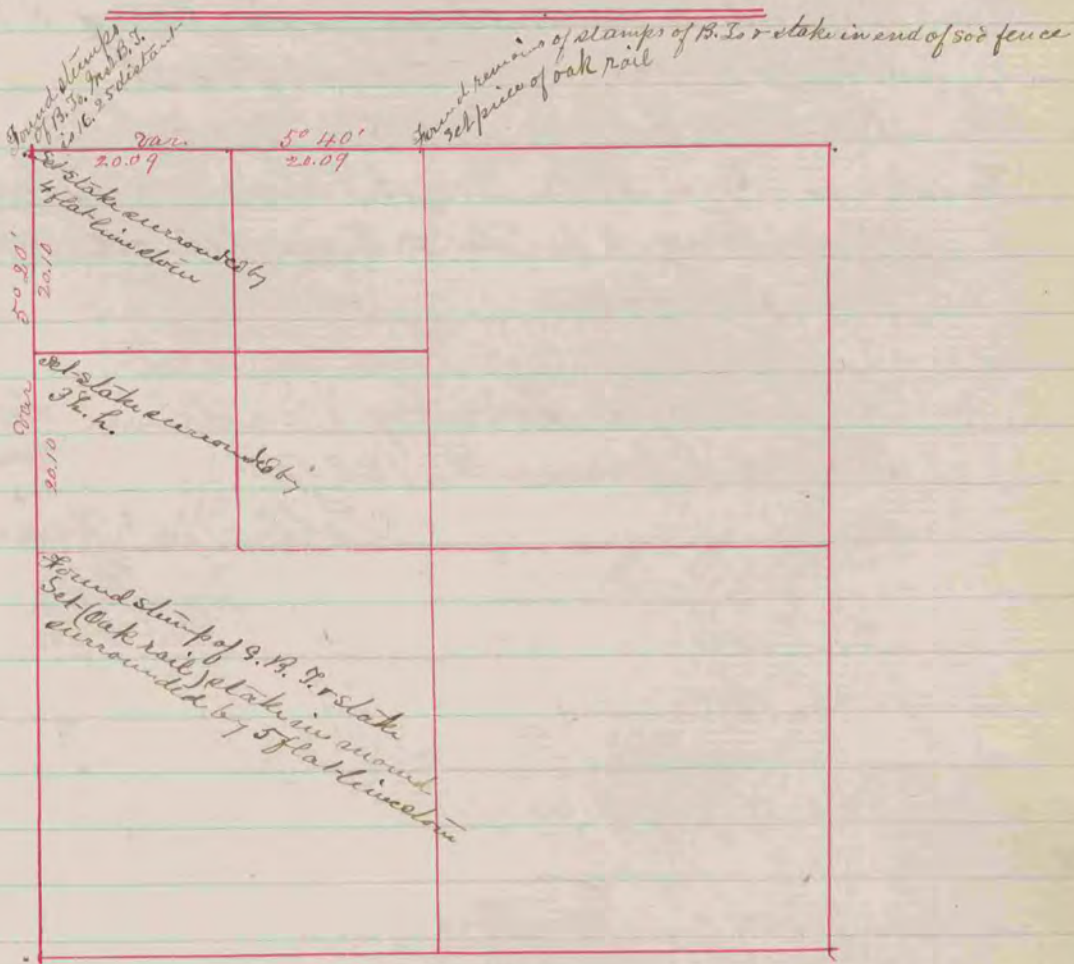 Found stumps
of B.Ts. B.T.
is 16.25 distant
Found remains of stamps of B.Ts & stake in end of sod fence
set piece of oak rail
Var. 5° 40'
20.09 20.09
Set stake surrounded by
4 flat limestone
Var 5° 20'
20.10
20.10
Set stake surrounded by
Found stump of S.B.T. & stake
Set (Oak rail) stake in mound
surrounded by 5 flat limestone